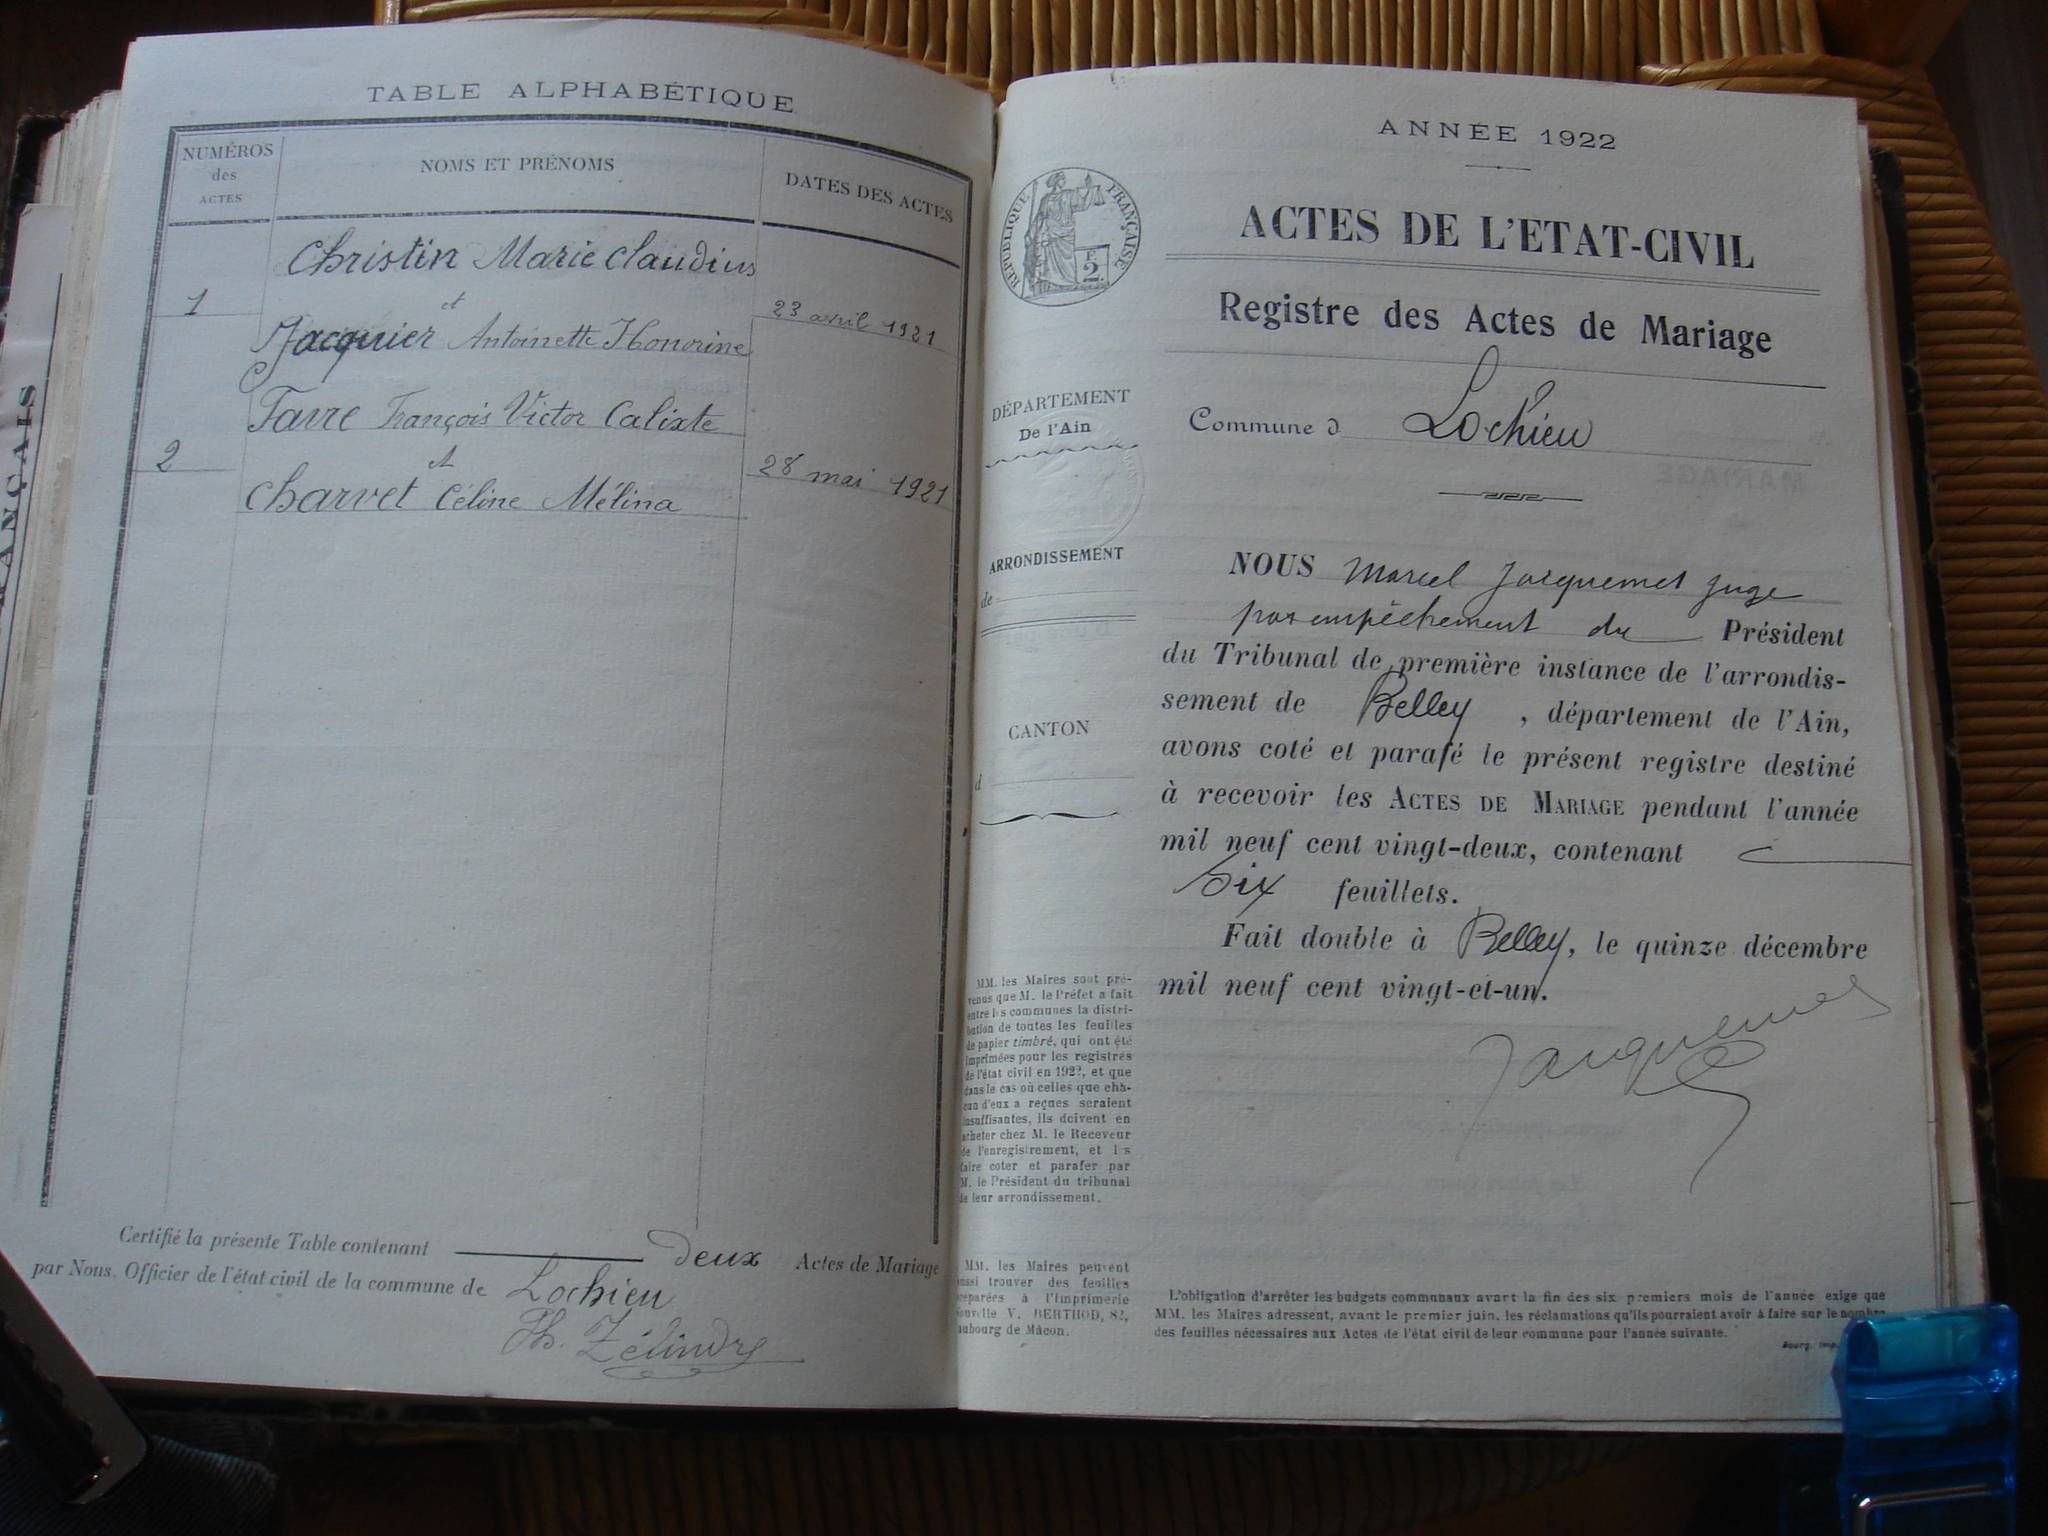 TABLE ALPHABÉTIQUE
NUMÉROS
des
ACTES
NOMS ET PRÉNOMS
DATES DES ACTES
Christin Marie Claudius
1
et
23 avril 1921
Jacquier Antoinette Honorine
Favre François Victor Calixte
2
et
28 mai 1921
Charvet Céline Mélina
Certifié la présente Table contenant deux Actes de Mariage
par Nous, Officier de l'état civil de la commune de Lochieu
Th. Zélindre
ANNÉE 1922
RÉPUBLIQUE FRANÇAISE
F.
2.
ACTES DE L'ETAT-CIVIL
Registre des Actes de Mariage
DÉPARTEMENT
De l'Ain
Commune d Lochieu
ARRONDISSEMENT
de
CANTON
d
NOUS Marcel Jacquemet juge
par empêchement du Président
du Tribunal de première instance de l'arrondis-
sement de Belley, département de l'Ain,
avons coté et parafé le présent registre destiné
à recevoir les ACTES DE MARIAGE pendant l'année
mil neuf cent vingt-deux, contenant
Six feuillets.
Fait double à Belley, le quinze décembre
mil neuf cent vingt-et-un.
Jacquemet
MM. les Maires sont pré-
venus que M. le Préfet a fait
entre les communes la distri-
bution de toutes les feuilles
de papier timbré, qui ont été
imprimées pour les registres
de l'état civil en 1922, et que
dans le cas où celles que cha-
cun d'eux a reçues seraient
insuffisantes, ils doivent en
acheter chez M. le Receveur
de l'enregistrement, et l s
faire coter et parafer par
M. le Président du tribunal
de leur arrondissement.
MM. les Maires peuvent
aussi trouver des feuilles
préparées à l'Imprimerie
Nouvelle V. BERTHOD, 82,
faubourg de Mâcon.
L'obligation d'arrêter les budgets communaux avant la fin des six premiers mois de l'année exige que
MM. les Maires adressent, avant le premier juin, les réclamations qu'ils pourraient avoir à faire sur le nombre
des feuilles nécessaires aux Actes de l'état civil de leur commune pour l'année suivante.
Bourg, Imp.